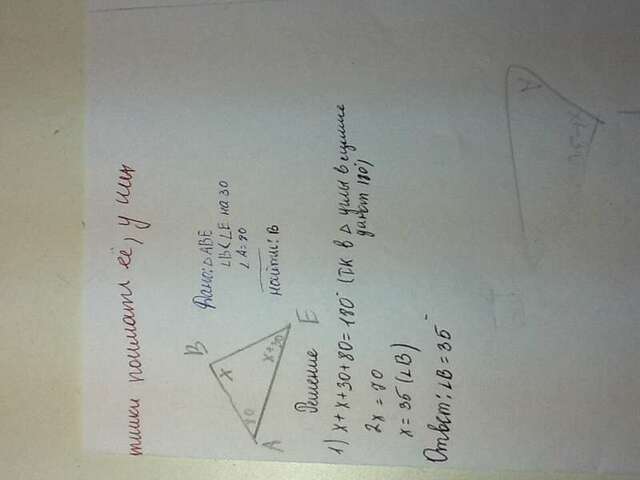 её, у
Дано: △ABE
∠B<∠E на 30
∠A=80
Найти: B
B
x
80
x+30
A
E
Решение
1) x+x+30+80=180° (т.к в △ углы в сумме
дают 180°)
2x=70
x=35 (∠B)
Ответ: ∠B=35°
A